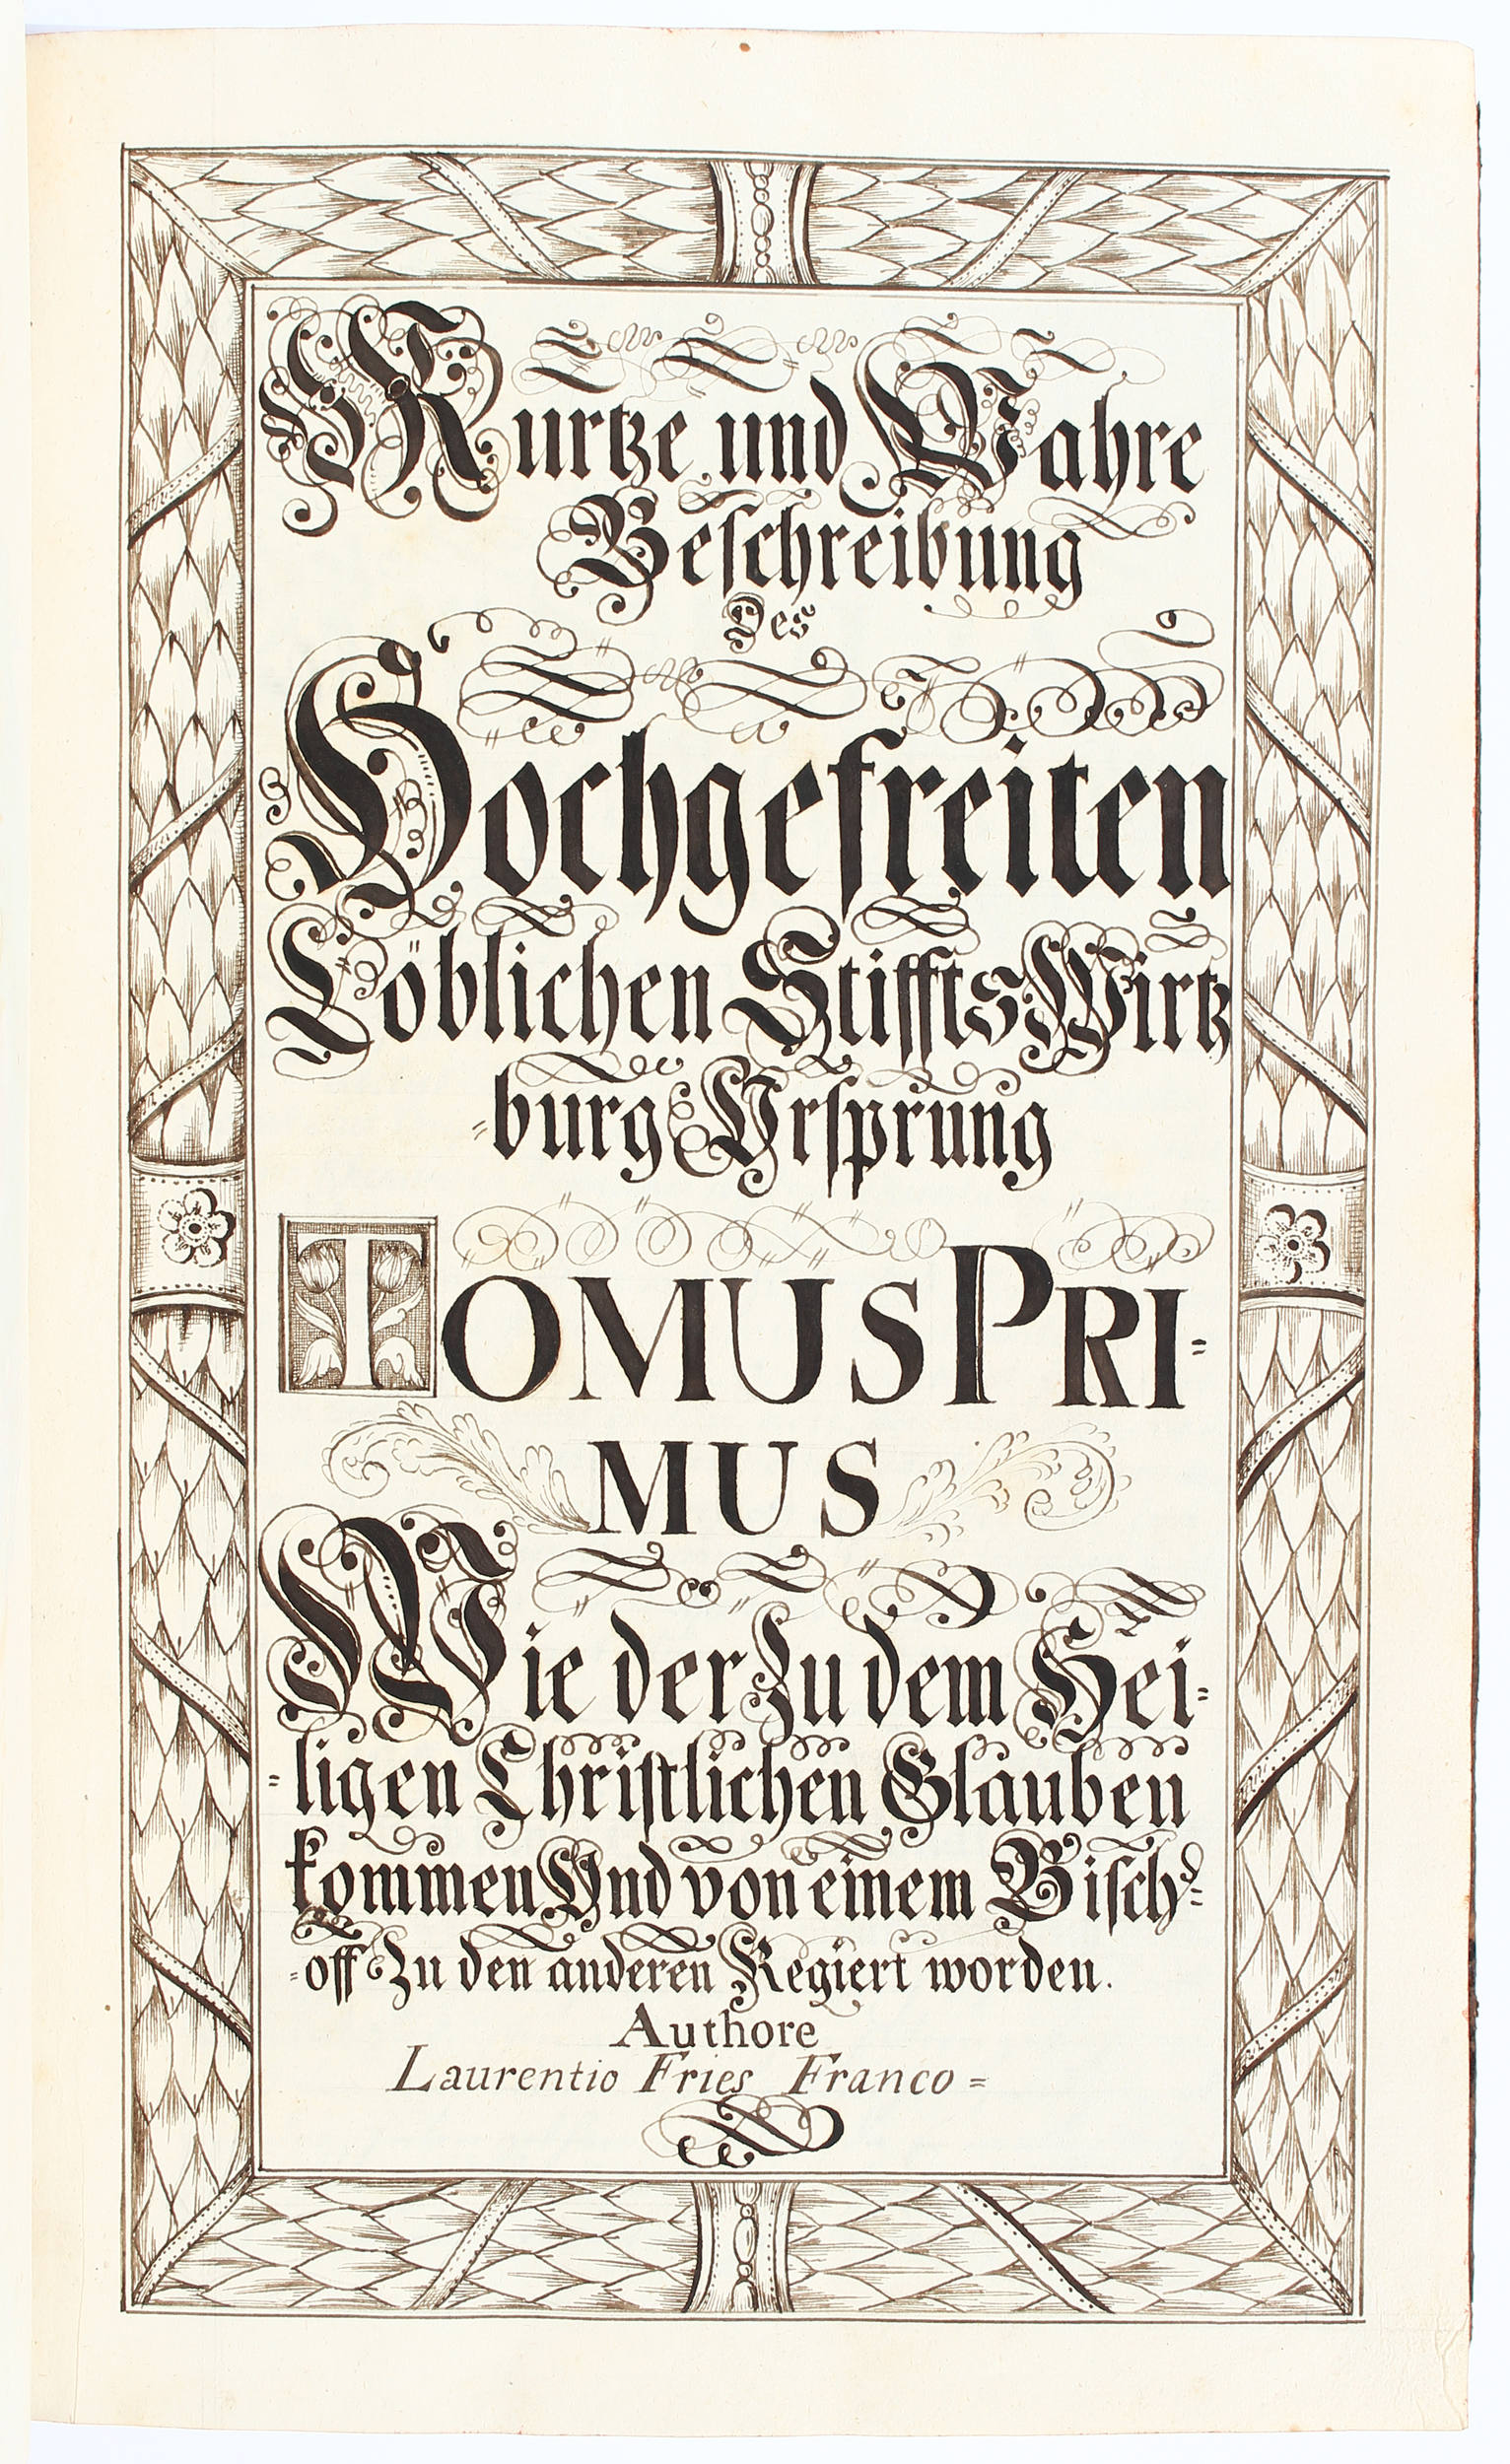 Kurtze und Wahre
Beschreibung
Des
Hochgefreiten
Löblichen Stiffts Wirtz
=burg Vrsprung
TOMUS PRI=
MUS
Wie der Zu dem Hei=
=ligen Christlichen Glauben
kommen Vnd von einem Bisch=
=off Zu den anderen Regiert worden.
Authore
Laurentio Fries Franco=